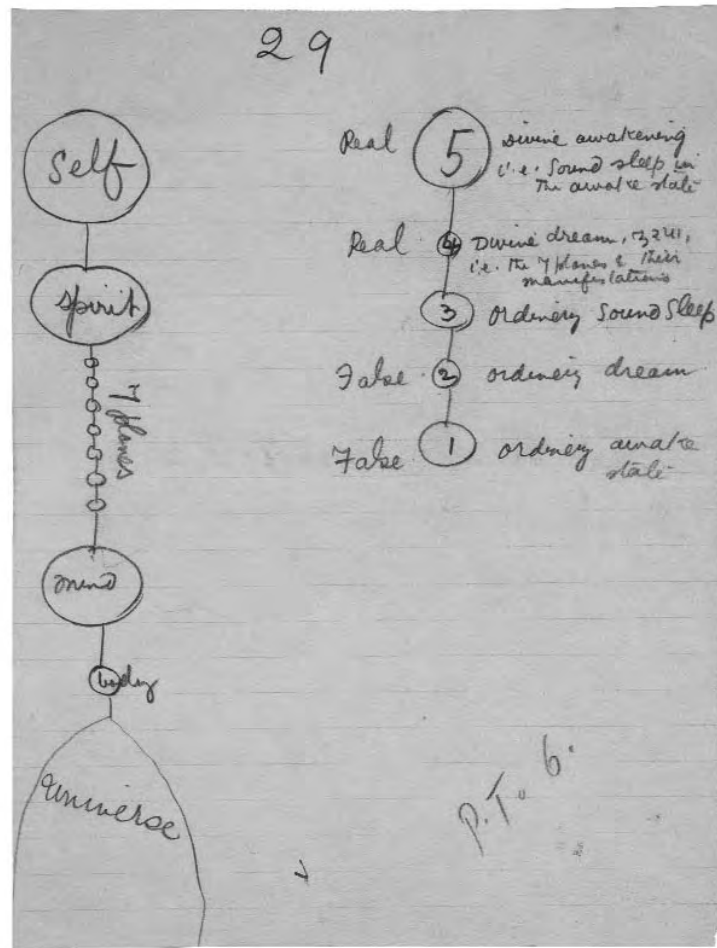 29
Self
spirit
7 planes
mind
body
universe
Real 5 Divine awakening
i.e. Sound sleep in
The awake state
Real 4 Divine dream,
i.e. the 7 planes & their
manifestations
3 ordinery Sound Sleep
False 2 ordinery dream
False 1 ordinery awake
state
P.T. 6.